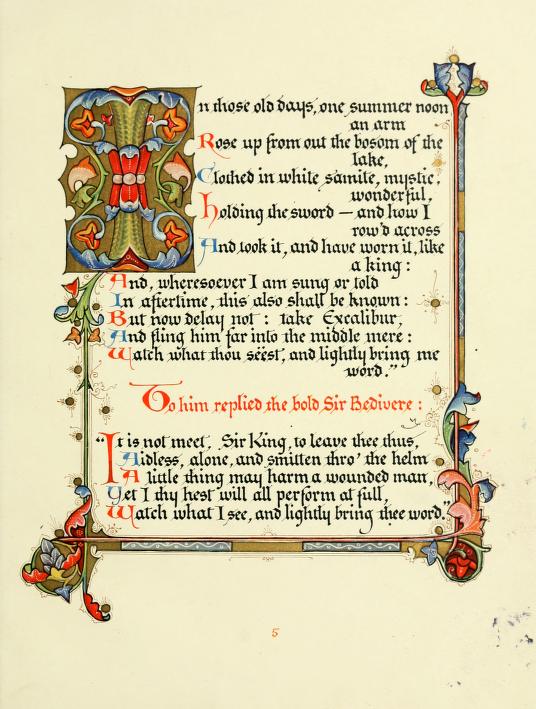 In those old days, one summer noon
an arm
Rose up from out the bosom of the
lake,
Clothed in white samite, mystic,
wonderful,
Holding the sword — and how I
row'd across
And took it, and have worn it, like
a king:
And, wheresoever I am sung or told
In aftertime, this also shall be known:
But now delay not: take Excalibur,
And fling him far into the middle mere:
Watch what thou seëst, and lightly bring me
word."
To him replied the bold Sir Bedivere:
"It is not meet, Sir King, to leave thee thus,
Aidless, alone, and smitten thro' the helm
A little thing may harm a wounded man,
Yet I thy hest will all perform at full,
Watch what I see, and lightly bring thee word."
5